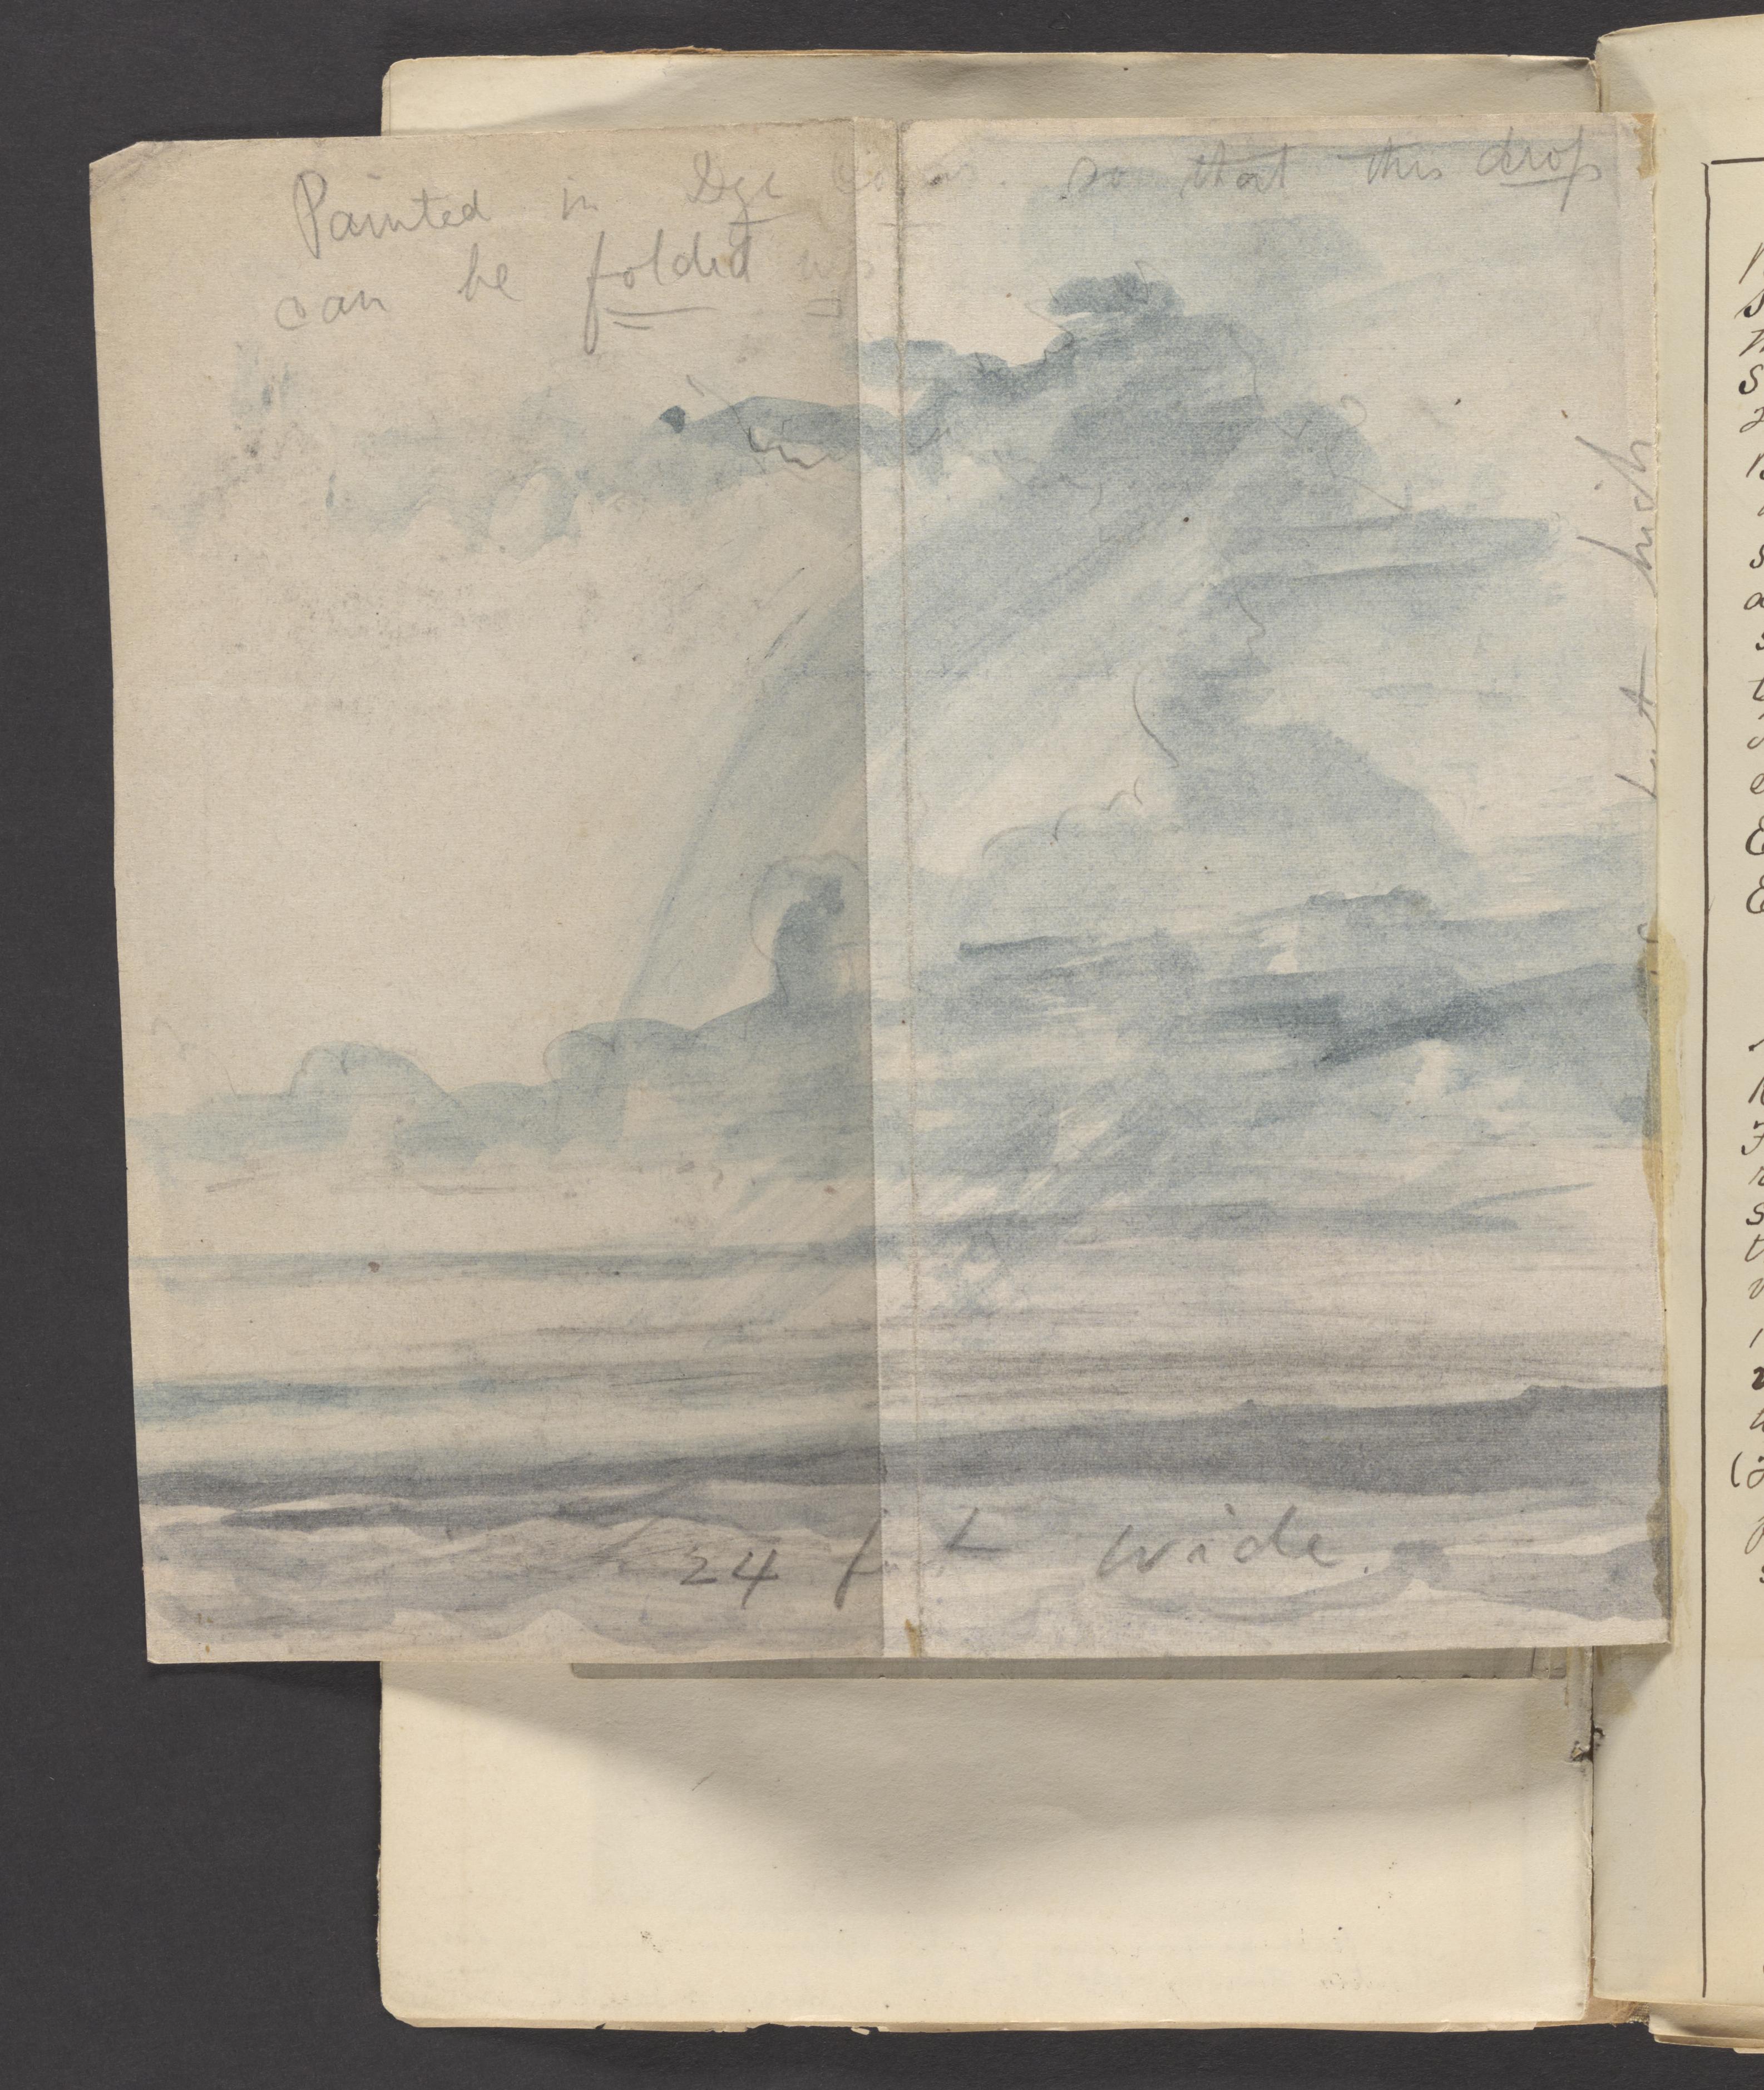 Painted in Dye so that this drop
can be folded up
feet high
24 feet wide.